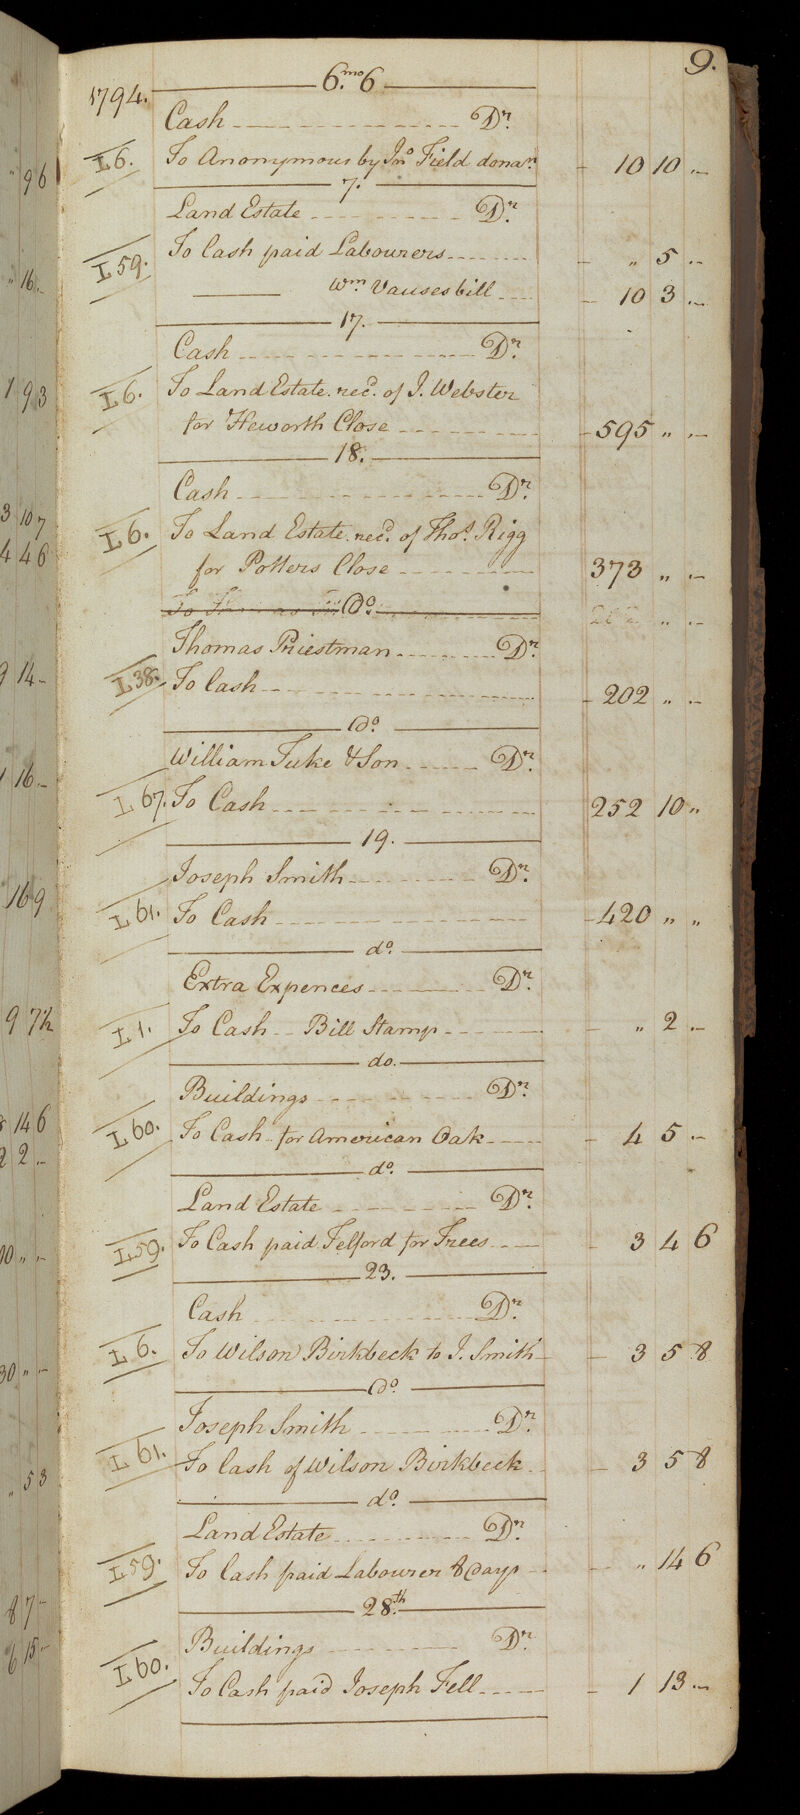 9.
1794. 6.mo 6
Cash Dr.
L 6. To Anonymous by Jno. Field donan. 10 10 "
7.
Land Estate Dr.
L 59. To Cash paid Labourers " 5 "
Wm. Vauses bill 10 3 "
17.
Cash Dr.
L 6. To Land Estate recd. of J. Webster
for Heworth Close 595 " "
18.
Cash Dr.
L 6. To Land Estate recd. of Thos. Rigg
for Potters Close 373 " "
Do. 202 " "
Thomas Priestman Dr.
L 38. To Cash 202 " "
Do.
William Tuke & Son Dr.
L 67. To Cash 252 10 "
19.
Joseph Smith Dr.
L 61. To Cash 420 " "
do.
Extra Expences Dr.
L 1. To Cash Bill Stamp " 2 "
do.
Buildings Dr.
L 60. To Cash for American Oak 4 5 "
do.
Land Estate Dr.
L 59. To Cash paid Telford for Trees 3 4 6
23.
Cash Dr.
L 6. To Wilson Birkbeck to J. Smith 3 5 8
Do.
Joseph Smith Dr.
L 61. To Cash of Wilson Birkbeck 3 5 8
do.
Land Estate Dr.
L 59. To Cash paid Labourer 8 days " 14 6
28.th
Buildings Dr.
L 60. To Cash paid Joseph Fell 1 13 "